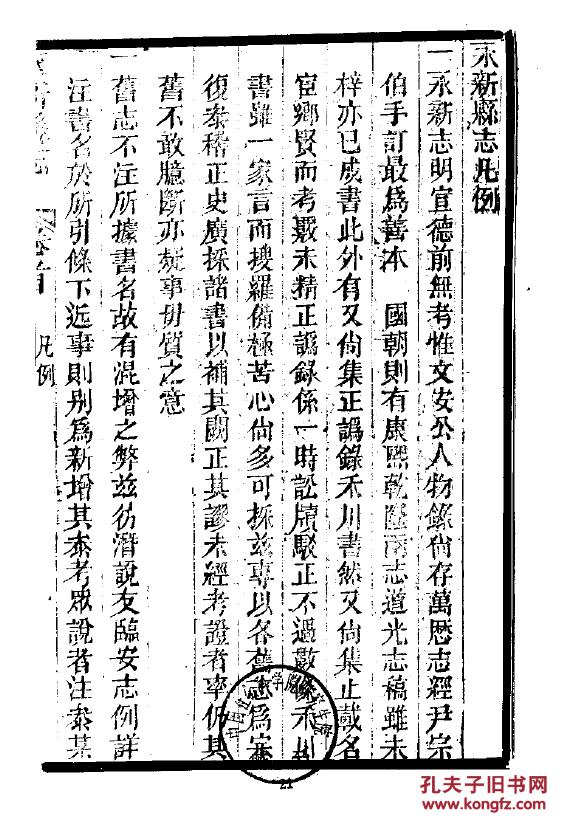 永新縣志凡例
一永新志明宣德前無考惟文安公人物錄尙存萬曆志經尹宗
伯手訂最爲善本　國朝則有康熙乾隆兩志道光志稿雖未
梓亦已成書此外有又尙集正譌錄禾川書然又尙集止載名
宦鄉賢而考覈未精正譌錄係一時訟牘駁正不過數條禾川
書雖一家言而搜羅備極苦心尙多可採兹專以各舊志爲
復叅稽正史廣採諸書以補其闕正其謬未經考證者率仍其
舊不敢臆斷亦疑事毋質之意
一舊志不注所據書名故有混增之弊兹仿潛說友臨安志例詳
注書名於所引條下近事則别爲新增其叅考眾說者注叅某
卷首
凡例
21
孔夫子旧书网
www.kongfz.com